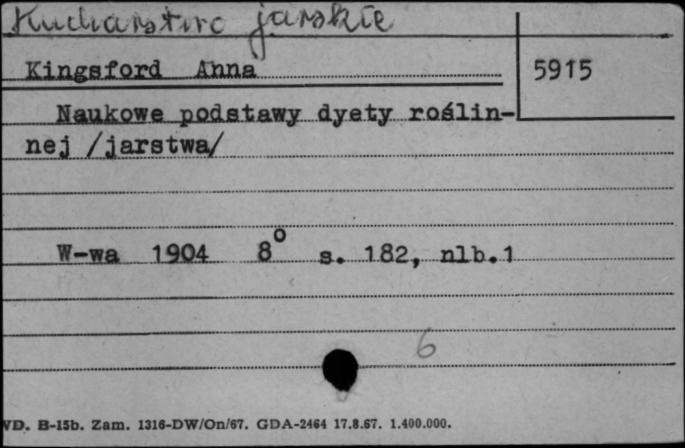 Kucharstwo jarskie
Kingsford Anna
5915
Naukowe podstawy dyety roślin-
nej /jarstwa/
W-wa 1904 8° s. 182, nlb.1
6
WD. B-15b. Zam. 1316-DW/On/67. GDA-2464 17.8.67. 1.400.000.